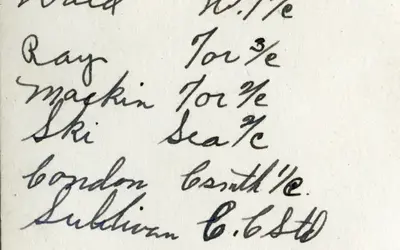 Ward W.T 1/c
Ray Tor 3/c
Mackin Tor 2/c
Ski Sea 2/c
Condon Csmth 1/c.
Sullivan C.C Std